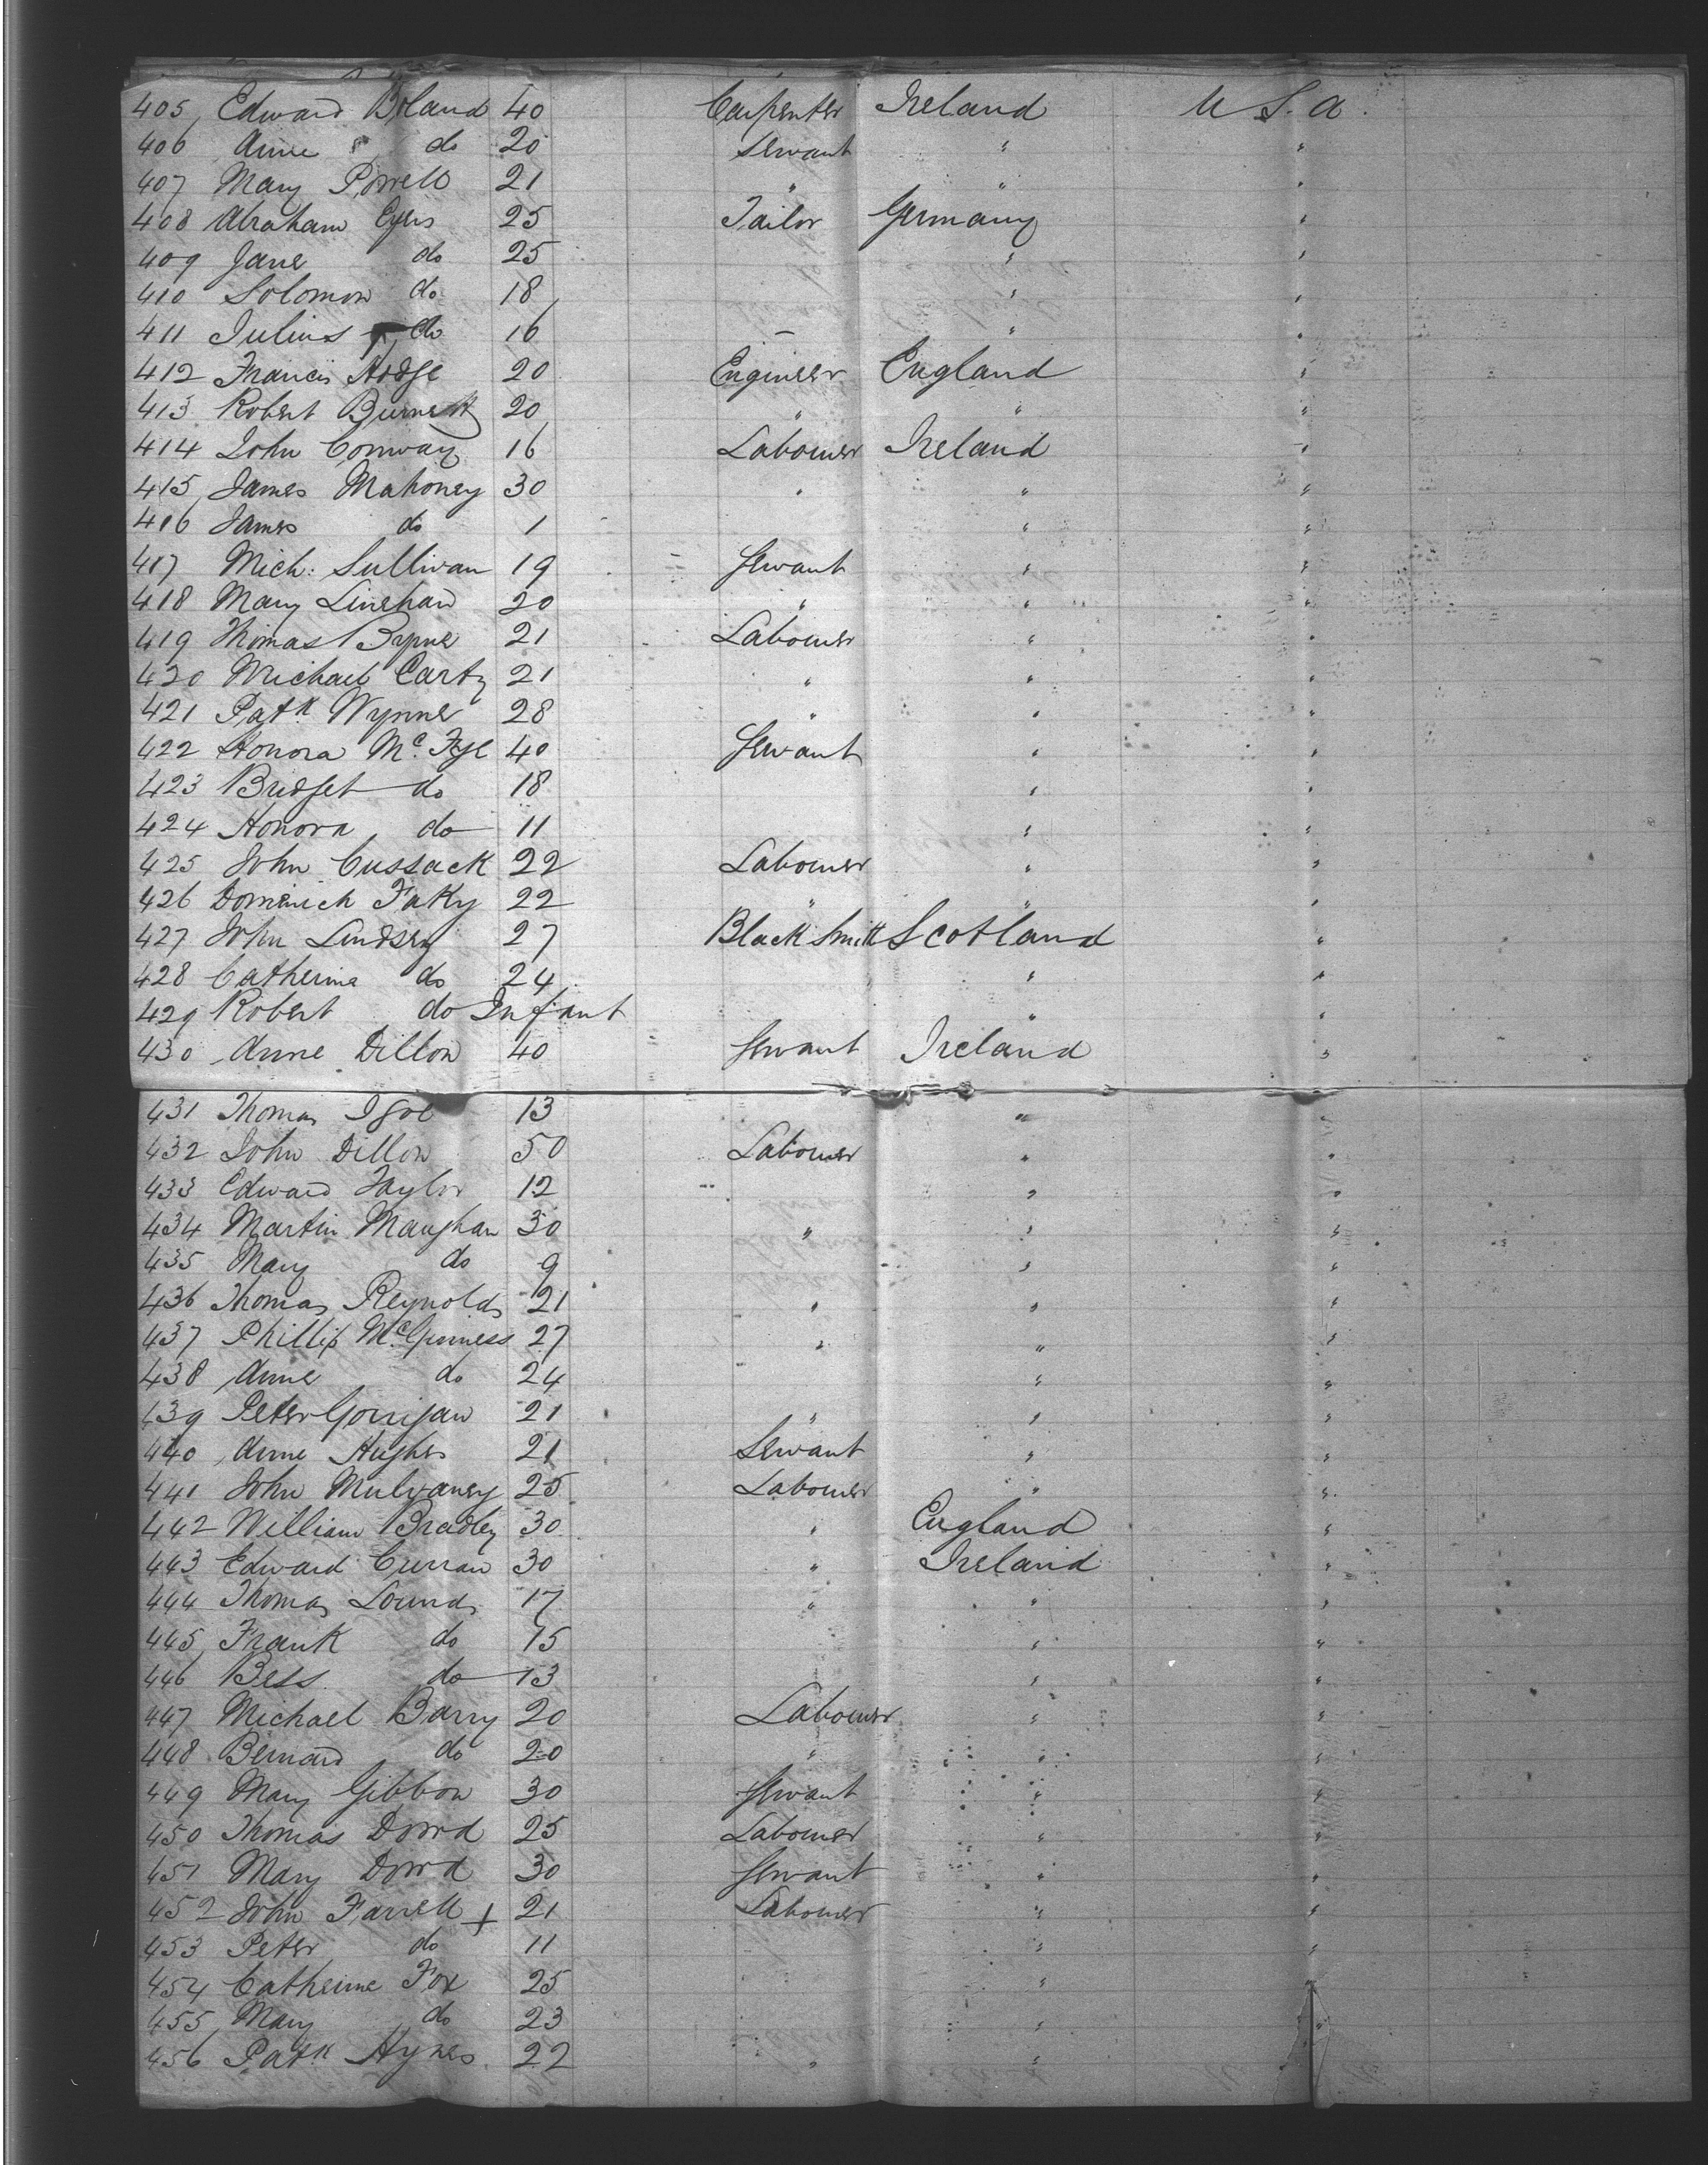 405 Edward Boland 40 Carpenter Ireland U S. A.
406 Anne do 20 Servant " "
407 Mary Powell 21 " " "
408 Abraham Eyers 25 Tailor Germany "
409 Jane do 25 " "
410 Solomon do 18 " "
411 Julius do 16 " "
412 Francis Hodge 20 Engineer England "
413 Robert Burnett 20 " " "
414 John Conway 16 Labourer Ireland "
415 James Mahoney 30 " " "
416 James do 1 " "
417 Mich: Sullivan 19 Servant " "
418 Mary Linehan 20 " " "
419 Thomas Byrne 21 Labourer " "
420 Michael Carty 21 " " "
421 Patk Wynne 28 " " "
422 Honora Mc 40 Servant " "
423 Bridget do 18 " "
424 Honora do 11 " "
425 John Cussack 22 Labourer " "
426 Domenich Fahy 22 " " "
427 John Lindsey 27 Black Smith Scotland "
428 Catherine do 24 " "
429 Robert do Infant " "
430 Anne Dillon 40 Servant Ireland "
431 Thomas Igoe 13 " "
432 John Dillon 50 Labourer " "
433 Edward Taylor 12 " "
434 Martin Maughan 30 " " "
435 Mary do 9 " "
436 Thomas Reynolds 21 " " "
437 Phillip McGuiness 27 " " "
438 Anne do 24 " "
439 Peter Gorrigan 21 " " "
440 Anne Hughes 21 Servant " "
441 John Mulvaney 25 Labourer " "
442 William Bradley 30 " England "
443 Edward Curran 30 " Ireland "
444 Thomas Lounds 17 " " "
445 Frank do 15 " "
446 Bess do 13 " "
447 Michael Barry 20 Labourer " "
448 Bernard do 20 " " "
449 Mary Gibbon 30 Servant " "
450 Thomas Dowd 25 Labourer " "
451 Mary Dowd 30 Servant " "
452 John Farrell + 21 Labourer " "
453 Peter do 11 " "
454 Catherine Fox 25 " "
455 Mary do 23 " "
456 Patk Hynes 22 " " "